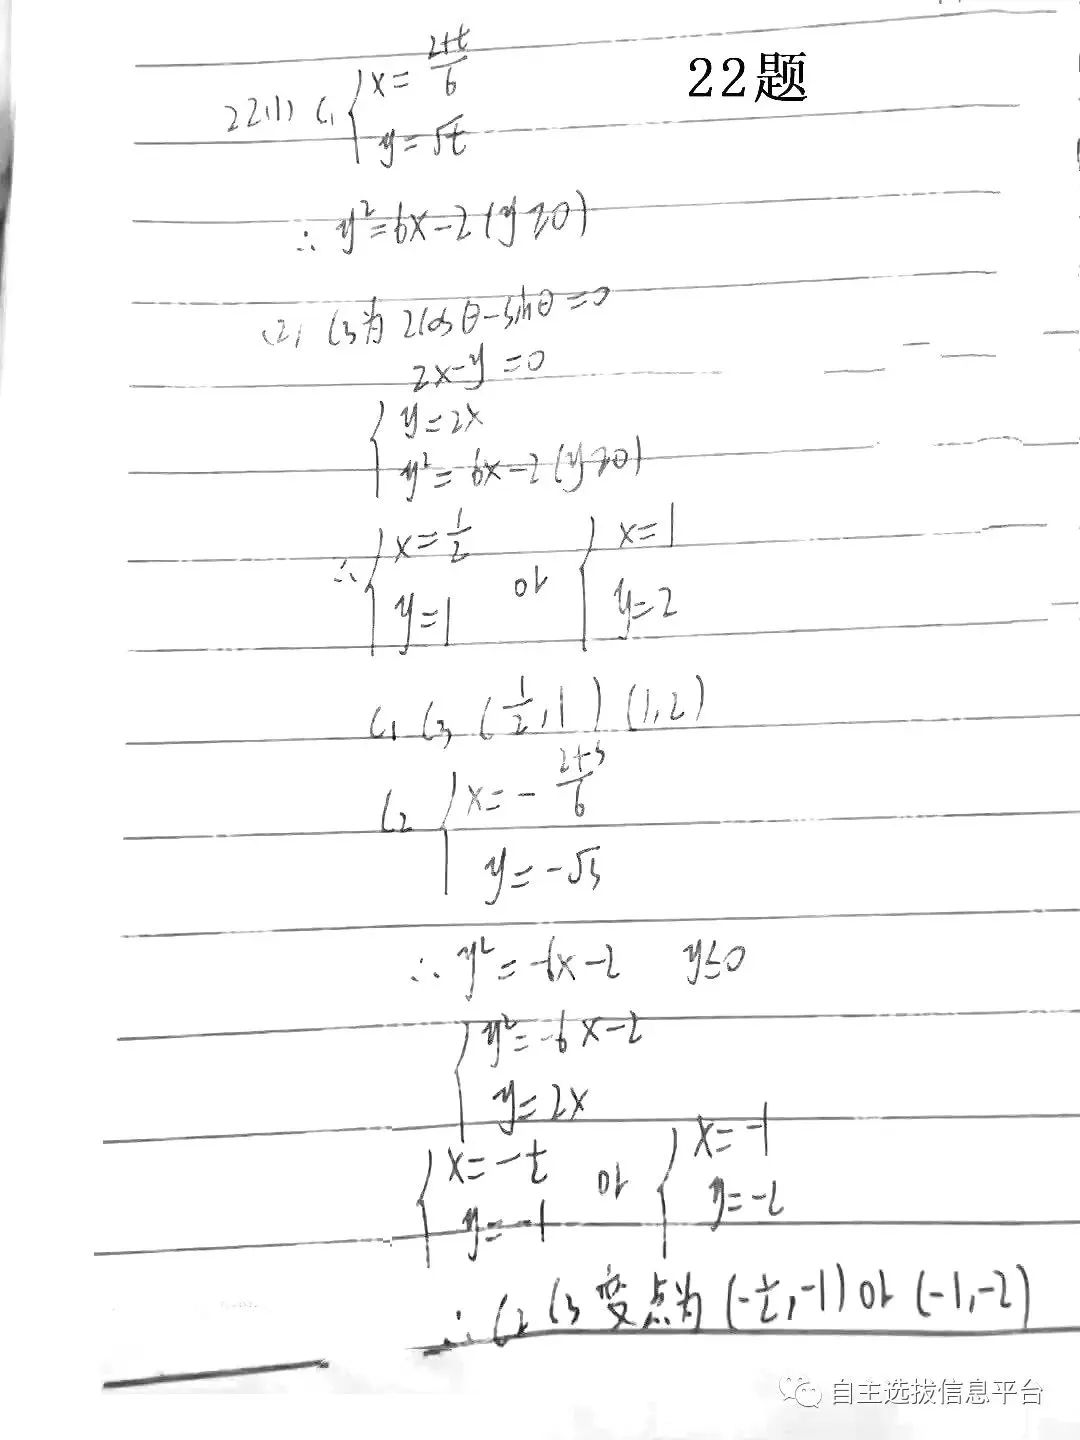 22题
22.(1) C₁ { x = (2+t)/6
y = √t
∴ y² = 6x-2 (y≥0)
(2) C₃为 2cosθ-sinθ=0
2x-y=0
{ y=2x
y²=6x-2 (y≥0)
∴ { x=1/2 y=1 or { x=1 y=2
C₁ C₃ (1/2, 1) (1,2)
C₂ { x = - (2+s)/6
y = -√s
∴ y² = -6x-2 y≤0
{ y² = -6x-2
y=2x
{ x=-1/2 y=-1 or { x=-1 y=-2
∴ C₂ C₃ 变点为 (-1/2,-1) or (-1,-2)
自主选拔信息平台